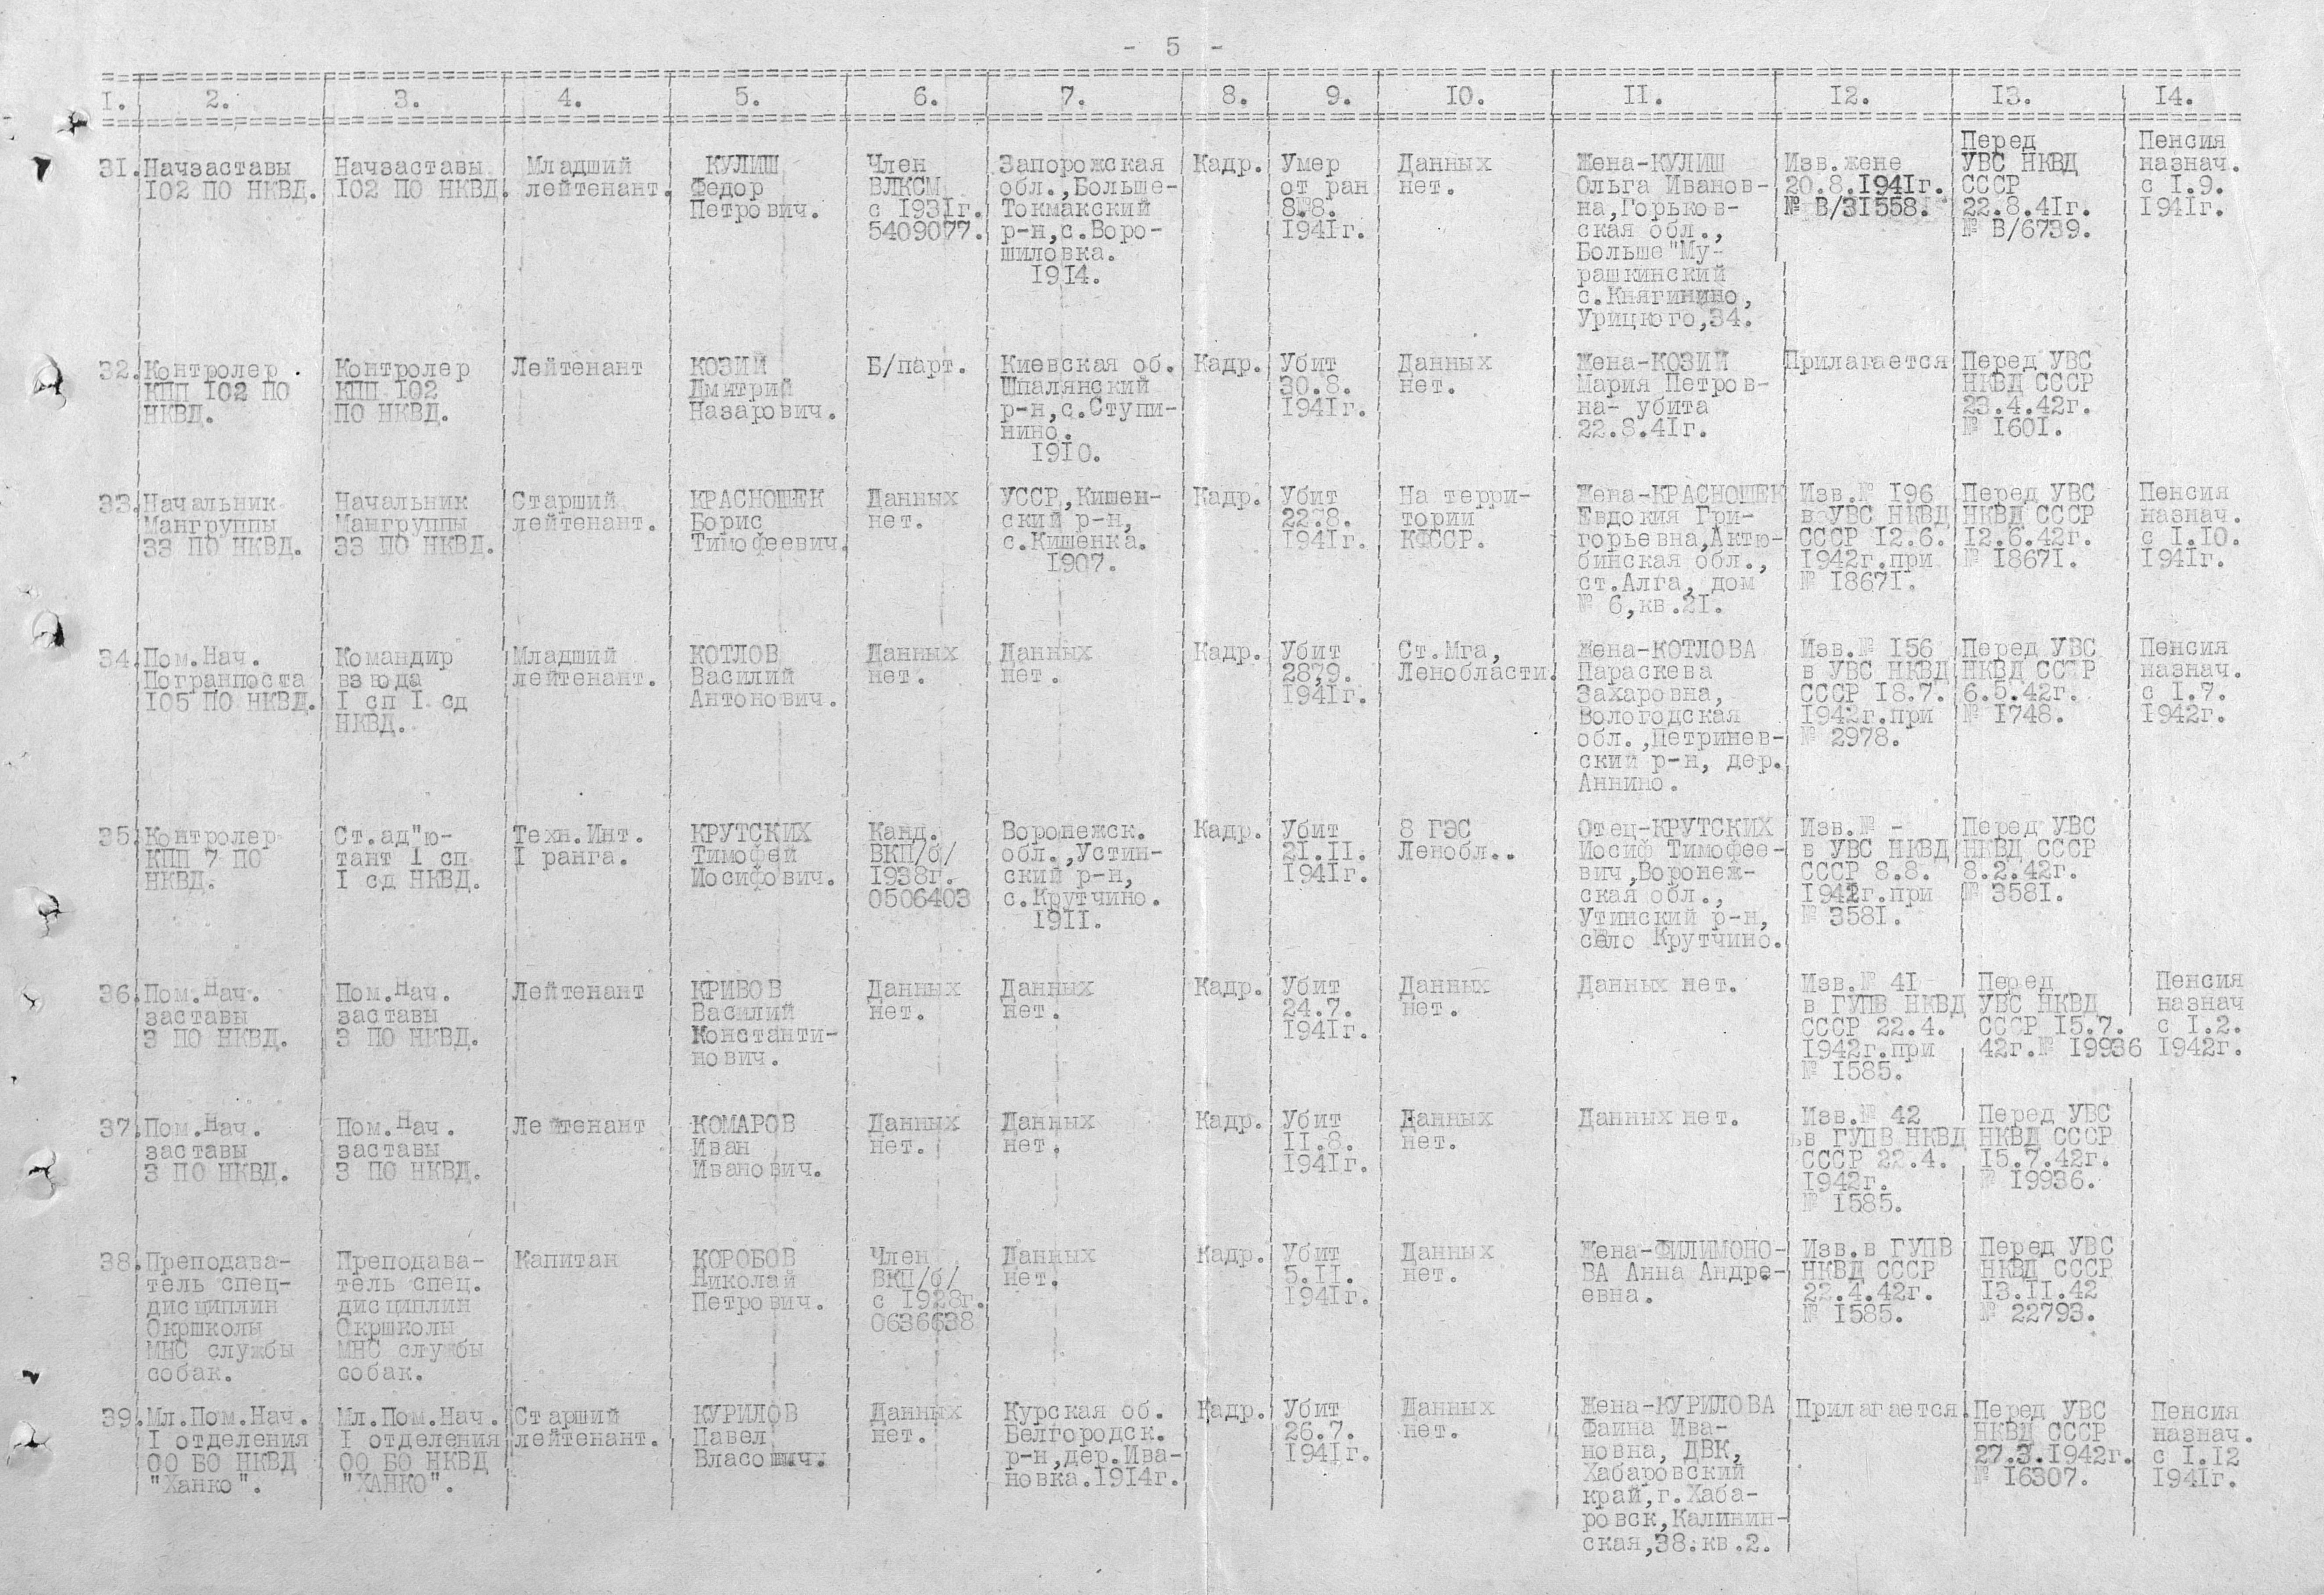 - 5 -
I. 2. 3. 4. 5. 6. 7. 8. 9. IO. II. I2. I3. I4.
31. Начзаставы
IO2 ПО НКВД.
Начзаставы
IO2 ПО НКВД.
Младший
лейтенант.
КУЛИШ
Федор
Петрович.
Член
ВЛКСМ
с I93Iг.
5409077.
Запорожская
обл.,Больше-
Токмакский
р-н,с.Воро-
шиловка.
I9I4.
Кадр.
Умер
от ран
8.8.
I94Iг.
Данных
нет.
Жена-КУЛИШ
Ольга Иванов-
на,Горьков-
ская обл.,
Больше"Му-
рашкинский
с.Княгинино,
Урицкого,34.
Изв.жене
20.8.I94Iг.
№ В/3I558.
Перед
УВС НКВД
СССР
22.8.4Iг.
№ В/6739.
Пенсия
назнач.
с I.9.
I94Iг.
32. Контролер
КПП IO2 ПО
НКВД.
Контролер
КПП IO2
ПО НКВД.
Лейтенант
КОЗИЙ
Дмитрий
Назарович.
Б/парт.
Киевская об.
Шпалянский
р-н,с.Ступи-
нино.
I9IO.
Кадр.
Убит
30.8.
I94Iг.
Данных
нет.
Жена-КОЗИЙ
Мария Петров-
на- убита
22.8.4Iг.
Прилагается
Перед УВС
НКВД СССР
23.4.42г.
№ I60I.
33. Начальник
Мангруппы
33 ПО НКВД.
Начальник
Мангруппы
33 ПО НКВД.
Старший
лейтенант.
КРАСНОШЕК
Борис
Тимофеевич.
Данных
нет.
УССР,Кишен-
ский р-н,
с.Кишенка.
I907.
Кадр.
Убит
22.8.
I94Iг.
На терри-
тории
КФССР.
Жена-КРАСНОШЕК
Евдокия Гри-
горьевна,Актю-
бинская обл.,
ст.Алга, дом
№ 6,кв.2I.
Изв.№ I96
в УВС НКВД
СССР I2.6.
I942г.при
№ I867I.
Перед УВС
НКВД СССР
I2.6.42г.
№ I867I.
Пенсия
назнач.
с I.IO.
I94Iг.
34. Пом.Нач.
Погранпоста
IO5 ПО НКВД.
Командир
взвода
I сп I сд
НКВД.
Младший
лейтенант.
КОТЛОВ
Василий
Антонович.
Данных
нет.
Данных
нет.
Кадр.
Убит
28,9.
I94Iг.
Ст.Мга,
Ленобласти.
Жена-КОТЛОВА
Параскева
Захаровна,
Вологодская
обл.,Петринев-
ский р-н, дер.
Аннино.
Изв.№ I56
в УВС НКВД
СССР I8.7.
I942г.при
№ 2978.
Перед УВС
НКВД СССР
6.5.42г.
№ I748.
Пенсия
назнач.
с I.7.
I942г.
35. Контролер
КПП 7 ПО
НКВД.
Ст.ад"ю-
тант I сп
I сд НКВД.
Техн.Инт.
I ранга.
КРУТСКИХ
Тимофей
Иосифович.
Канд.
ВКП/б/
I938г.
0506403
Воронежск.
обл.,Устин-
ский р-н,
с.Крутчино.
I9II.
Кадр.
Убит
2I.II.
I94Iг.
8 ГЭС
Ленобл..
Отец-КРУТСКИХ
Иосиф Тимофее-
вич,Воронеж-
ская обл.,
Утинский р-н,
село Крутчино.
Изв.№ -
в УВС НКВД
СССР 8.8.
I942г.при
№ 358I.
Перед УВС
НКВД СССР
8.2.42г.
№ 358I.
36. Пом.Нач.
заставы
3 ПО НКВД.
Пом.Нач.
заставы
3 ПО НКВД.
Лейтенант
КРИВОВ
Василий
Константи-
нович.
Данных
нет.
Данных
нет.
Кадр.
Убит
24.7.
I94Iг.
Данных
нет.
Данных нет.
Изв.№ 4I
в ГУПВ НКВД
СССР 22.4.
I942г.при
№ I585.
Перед
УВС НКВД
СССР I5.7.
42г.№ I9936
Пенсия
назнач
с I.2.
I942г.
37. Пом.Нач.
заставы
3 ПО НКВД.
Пом.Нач.
заставы
3 ПО НКВД.
Лейтенант
КОМАРОВ
Иван
Иванович.
Данных
нет.
Данных
нет.
Кадр.
Убит
II.8.
I94Iг.
Данных
нет.
Данных нет.
Изв.№ 42
в ГУПВ НКВД
СССР 22.4.
I942г.
№ I585.
Перед УВС
НКВД СССР
I5.7.42г.
№ I9936.
38. Преподава-
тель спец-
дисциплин
Окршколы
МНС службы
собак.
Преподава-
тель спец.
дисциплин
Окршколы
МНС службы
собак.
Капитан
КОРОБОВ
Николай
Петрович.
Член
ВКП/б/
с I928г.
0636638
Данных
нет.
Кадр.
Убит
5.II.
I94Iг.
Данных
нет.
Жена-ФИЛИМОНО-
ВА Анна Андре-
евна.
Изв.в ГУПВ
НКВД СССР
22.4.42г.
№ I585.
Перед УВС
НКВД СССР
I3.II.42
№ 22793.
39. Мл.Пом.Нач.
I отделения
ОО БО НКВД
"Ханко".
Мл.Пом.Нач.
I отделения
ОО БО НКВД
"ХАНКО".
Старший
лейтенант.
КУРИЛОВ
Павел
Данных
нет.
Курская об.
Белгородск.
р-н,дер.Ива-
новка.I9I4г.
Кадр.
Убит
26.7.
I94Iг.
Данных
нет.
Жена-КУРИЛОВА
Фаина Ива-
новна, ДВК,
Хабаровский
край,г.Хаба-
ровск,Калинин-
ская,38.кв.2.
Прилагается.
Перед УВС
НКВД СССР
27.3.I942г.
№ I6307.
Пенсия
назнач.
с I.I2
I94Iг.